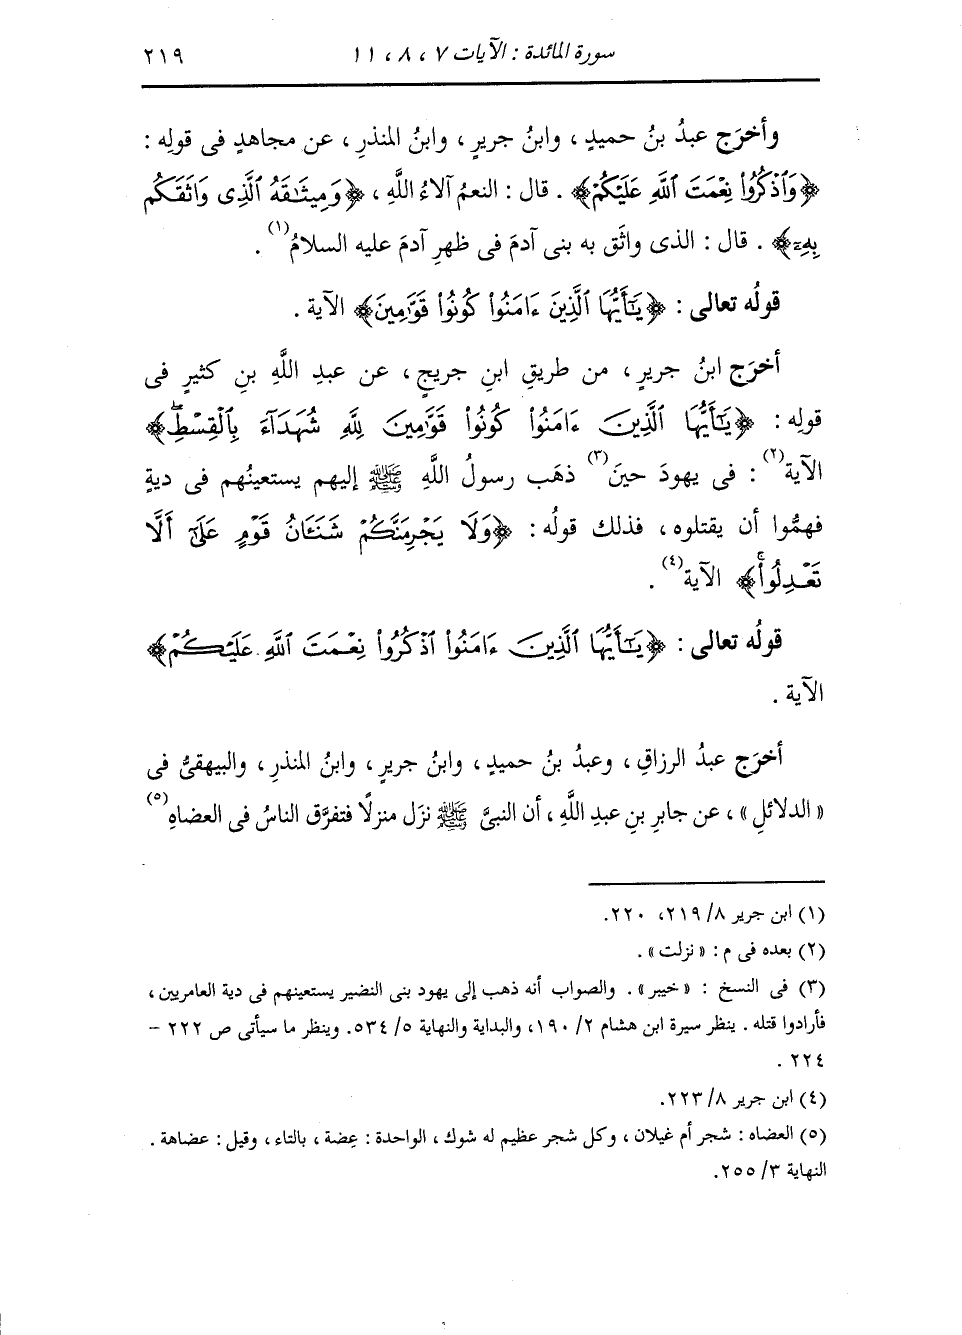 سورة المائدة : الآيات ٧ ، ٨ ، ١١ ٢١٩
وأخرَج عبدُ بنُ حميدٍ ، وابنُ جريرٍ ، وابنُ المنذرِ ، عن مجاهدٍ فى قولِه :
﴿وَٱذْكُرُوا۟ نِعْمَتَ ٱللَّهِ عَلَيْكُمْ﴾ . قال : النعمُ آلاءُ اللَّهِ ، ﴿وَمِيثَـٰقَهُ ٱلَّذِى وَاثَقَكُم
بِهِۦٓ﴾ . قال : الذى واثَق به بنى آدمَ فى ظهرِ آدمَ عليه السلامُ(١) .
قولُه تعالى : ﴿يَـٰٓأَيُّهَا ٱلَّذِينَ ءَامَنُوا۟ كُونُوا۟ قَوَّٰمِينَ﴾ الآية .
أخرَج ابنُ جريرٍ ، من طريقِ ابنِ جريجٍ ، عن عبدِ اللَّهِ بنِ كثيرٍ فى
قولِه : ﴿يَـٰٓأَيُّهَا ٱلَّذِينَ ءَامَنُوا۟ كُونُوا۟ قَوَّٰمِينَ لِلَّهِ شُهَدَآءَ بِٱلْقِسْطِ ۖ﴾
الآية(٢) : فى يهودَ حينَ(٣) ذهَب رسولُ اللَّهِ ﷺ إليهم يستعينُهم فى ديةٍ
فهمُّوا أن يقتلوه ، فذلك قولُه : ﴿وَلَا يَجْرِمَنَّكُمْ شَنَـَٔانُ قَوْمٍ عَلَىٰٓ أَلَّا
تَعْدِلُوا۟ ۚ﴾ الآية(٤) .
قولُه تعالى : ﴿يَـٰٓأَيُّهَا ٱلَّذِينَ ءَامَنُوا۟ ٱذْكُرُوا۟ نِعْمَتَ ٱللَّهِ عَلَيْكُمْ﴾
الآية .
أخرَج عبدُ الرزاقِ ، وعبدُ بنُ حميدٍ ، وابنُ جريرٍ ، وابنُ المنذرِ ، والبيهقىُّ فى
« الدلائلِ » ، عن جابرِ بنِ عبدِ اللَّهِ ، أن النبىَّ ﷺ نزَل منزلًا فتفرَّق الناسُ فى العضاهِ(٥)
(١) ابن جرير ٨/ ٢١٩، ٢٢٠.
(٢) بعده فى م : « نزلت » .
(٣) فى النسخ : « خيبر » . والصواب أنه ذهب إلى يهود بنى النضير يستعينهم فى دية العامريين ،
فأرادوا قتله . ينظر سيرة ابن هشام ٢/ ١٩٠، والبداية والنهاية ٥/ ٥٣٤. وينظر ما سيأتى ص ٢٢٢ –
٢٢٤ .
(٤) ابن جرير ٨/ ٢٢٣.
(٥) العضاه : شجر أم غيلان ، وكل شجر عظيم له شوك ، الواحدة : عِضة ، بالتاء ، وقيل : عضاهة .
النهاية ٣/ ٢٥٥.